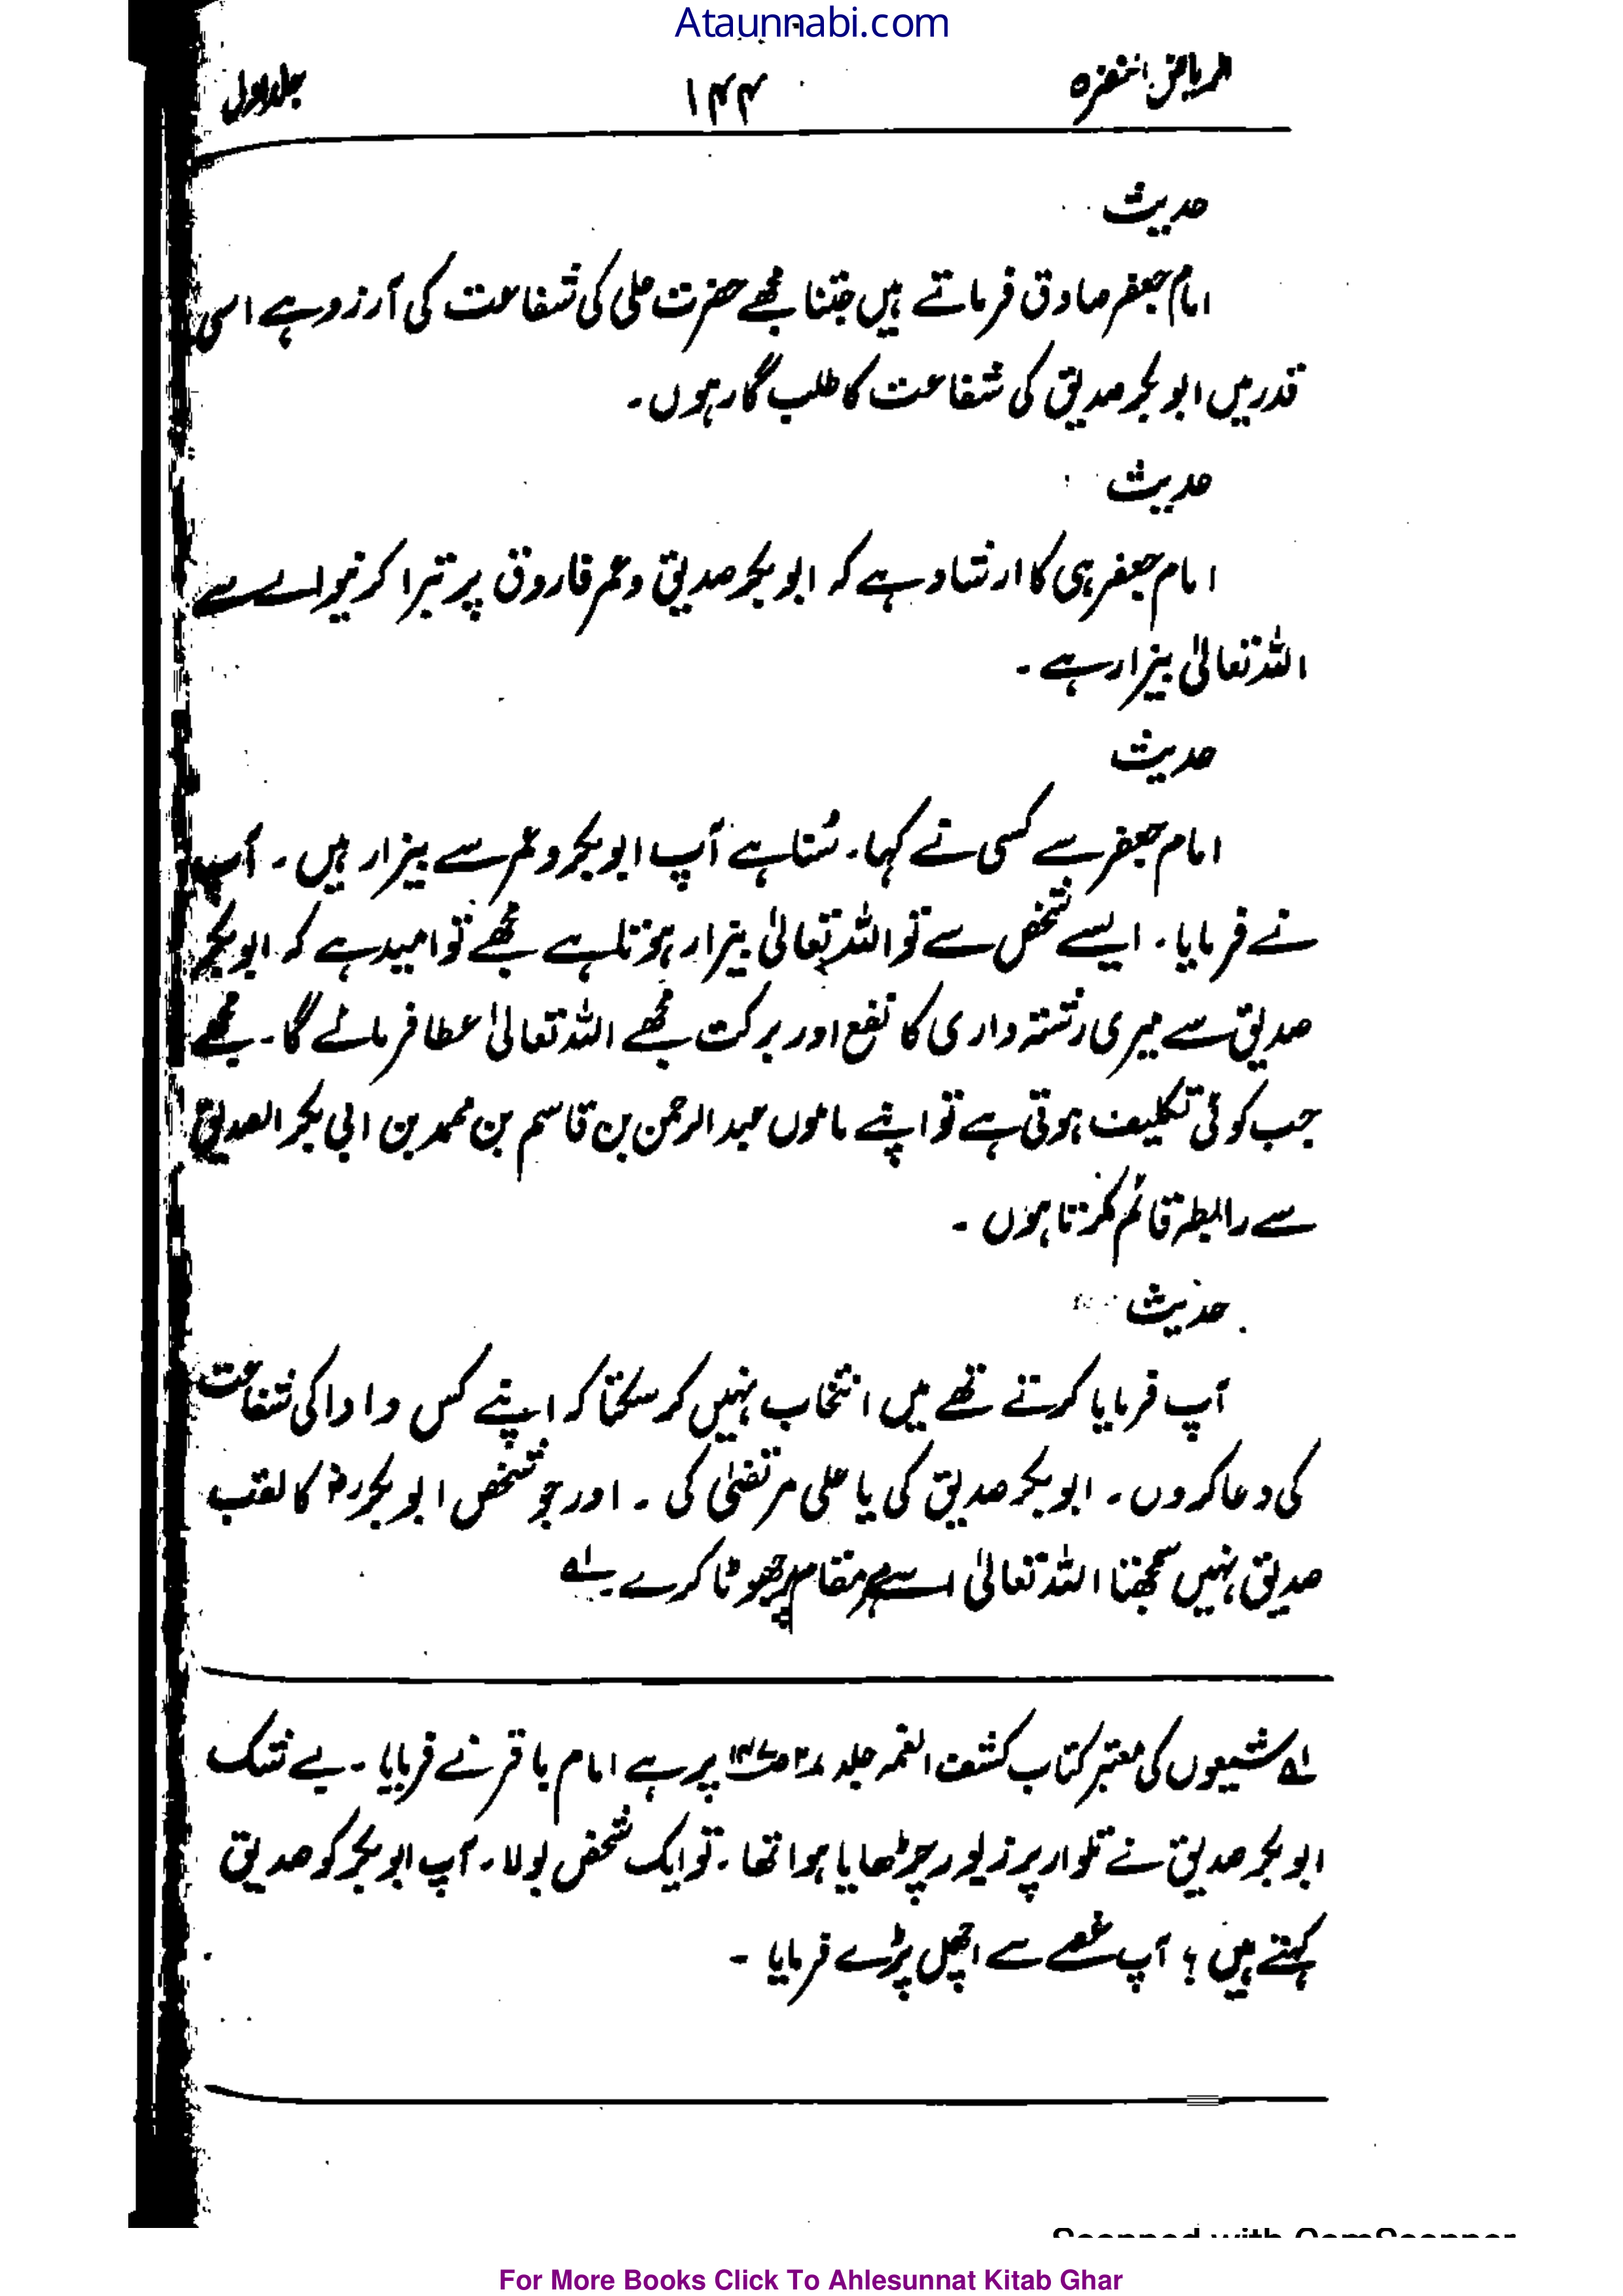 Ataunnabi.com
الریاض النضرہ ۱۴۴ جلد اول
حدیث
امام جعفر صادق فرماتے ہیں جتنا مجھے حضرت علی کی شفاعت کی آرزو ہے اسی
قدر میں ابوبکر صدیق کی شفاعت کا طلب گار ہوں۔
حدیث
امام جعفر ہی کا ارشاد ہے کہ ابوبکر صدیق و عمر فاروق پر تبرا کرنیوالے سے
اللہ تعالیٰ بیزار ہے۔
حدیث
امام جعفر سے کسی نے کہا۔ سُنا ہے آپ ابوبکر و عمر سے بیزار ہیں۔ آپ
نے فرمایا۔ ایسے شخص سے تو اللہ تعالیٰ بیزار ہوتا ہے مجھے تو امید ہے کہ ابوبکر
صدیق سے میری رشتہ داری کا نفع اور برکت مجھے اللہ تعالیٰ عطا فرمائے گا۔ مجھے
جب کوئی تکلیف ہوتی ہے تو اپنے ماموں عبدالرحمن بن قاسم بن محمد بن ابی بکر الصدیق
سے رابطہ قائم کرتا ہوں۔
حدیث
آپ فرمایا کرتے تھے میں انتخاب نہیں کر سکتا کہ اپنے کس دادا کی شفاعت
کی دعا کروں۔ ابوبکر صدیق کی یا علی مرتضیٰ کی۔ اور جو شخص ابوبکرؓ کا لقب
صدیق نہیں سمجھتا اللہ تعالیٰ اسے ہر مقام پر جھوٹا کرے۔ لہ
لہ شیعوں کی معتبر کتاب کشف الغمہ جلد ۲ پر ہے امام باقر نے فرمایا۔ بے شک
ابوبکر صدیق نے تلوار پر زیور چڑھایا ہوا تھا۔ تو ایک شخص بولا۔ آپ ابوبکر کو صدیق
کہتے ہیں؟ آپ غصے سے اچھل پڑے فرمایا۔
Scanned with CamScanner
For More Books Click To Ahlesunnat Kitab Ghar